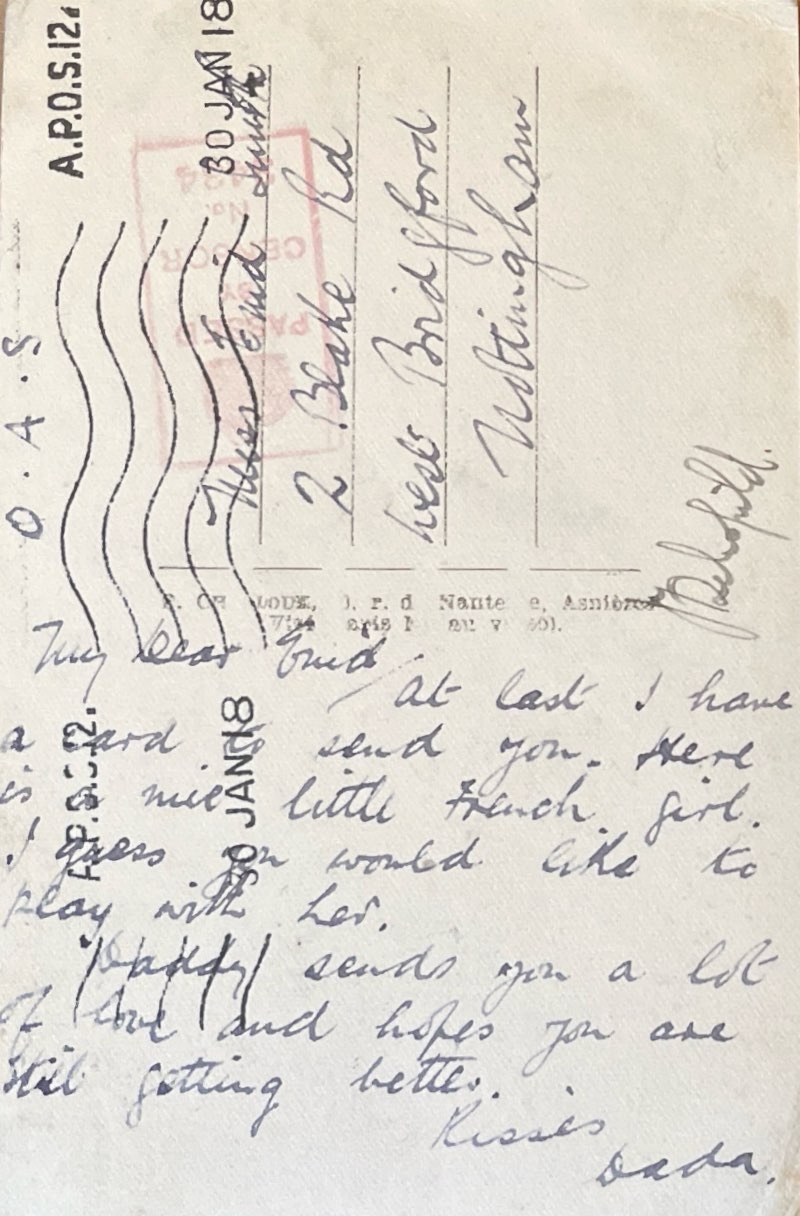 O.A.S
A.P.O.S.12.
30 JAN 18
PASSED
BY
CENSOR
No.
Miss Enid Smith
2 Blake Rd
West Bridgford
Nottingham
Schofield.
Nante e, Asnières
aris au v so).
My Dear Enid
At last I have
a card to send you. Here
is a nice little French girl.
I guess you would like to
play with her.
Daddy sends you a lot
of love and hopes you are
still getting better.
Kisses
Dada.
A.P.O.S.12.
30 JAN 18